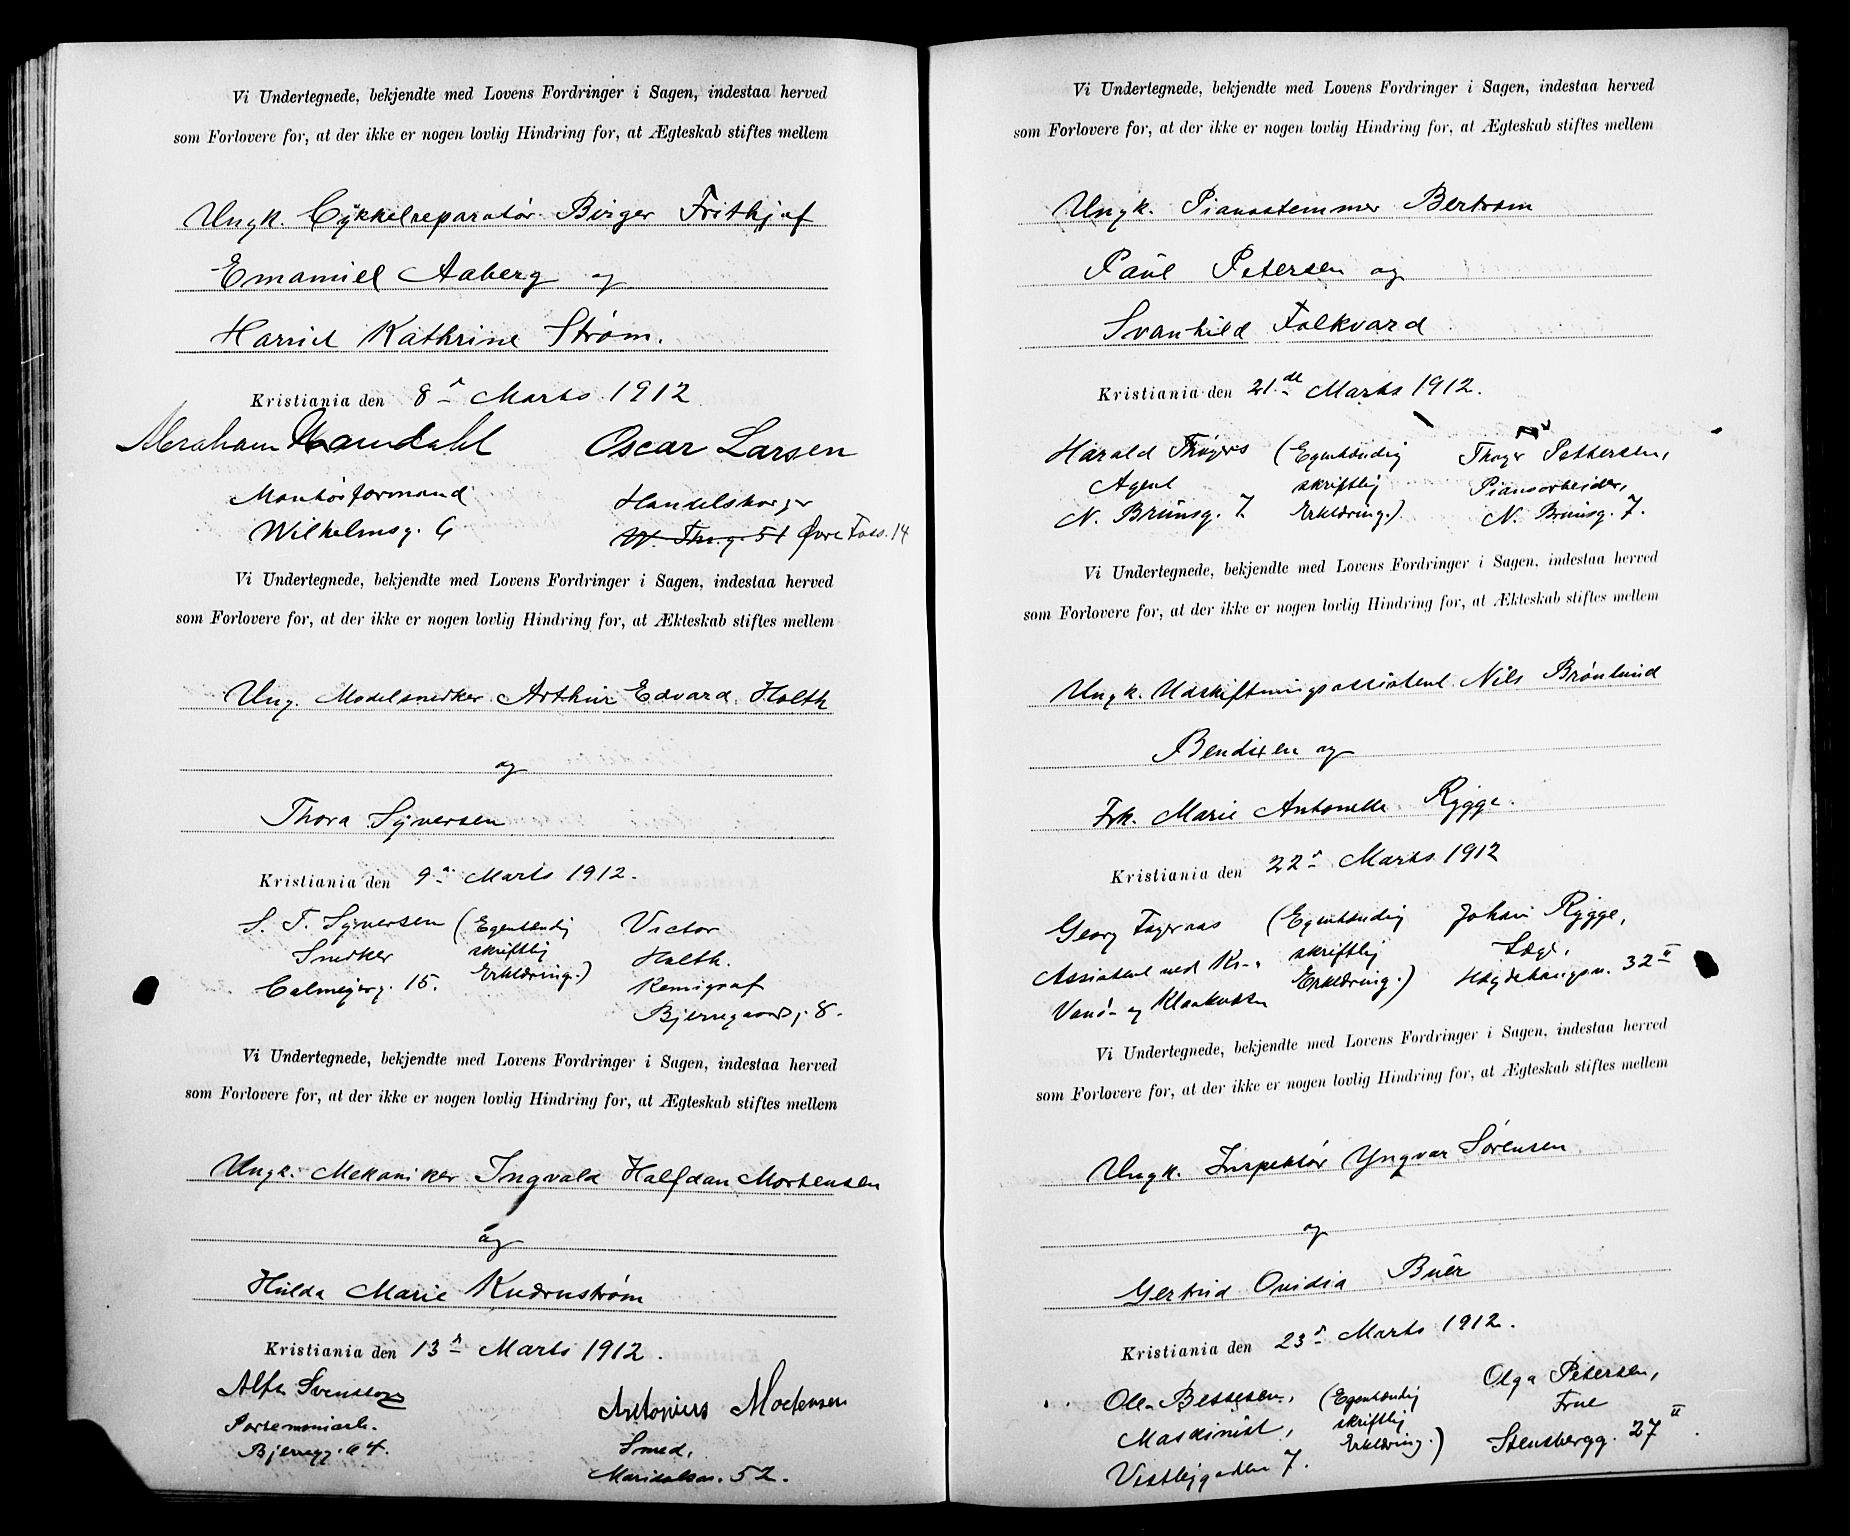 Vi Undertegnede, bekjendte med Lovens Fordringer i Sagen, indestaa herved
som Forlovere for, at der ikke er nogen lovlig Hindring for, at Ægteskab stiftes mellem
Ungk. Cykkelreparatør Birger Frithjof
Emanuel Aaberg og
Harriet Kathrine Strøm.
Kristiania den 8de Marts 1912
Abraham Oscar Larsen
Handelsborger
Wilhelmsg. 6
W. Thr. g. 51 Øvre Foss. 14
Vi Undertegnede, bekjendte med Lovens Fordringer i Sagen, indestaa herved
som Forlovere for, at der ikke er nogen lovlig Hindring for, at Ækteskab stiftes mellem
Ung. Modelsnedker Arthur Edvard Holth
og
Thora Syversen
Kristiania den 9de Marts 1912.
S. T. Syversen (Egenhændig Victor
Snedker skriftlig Holth.
Calmejerg. 15. Erklæring.) Kemigraf
Bjerregaardsg. 8.
Vi Undertegnede, bekjendte med Lovens Fordringer i Sagen, indestaa herved
som Forlovere for, at der ikke er nogen lovlig Hindring for, at Ægteskab stiftes mellem
Ungk. Mekaniker Ingvald Halfdan Mortensen
og
Hulda Marie
Kristiania den 13de Marts 1912.
Alfr. Svensson Antonius Mortensen
Portemoniarb. Smed,
Maridalsv. 52.
Vi Undertegnede, bekjendte med Lovens Fordringer i Sagen, indestaa herved
som Forlovere for, at der ikke er nogen lovlig Hindring for, at Ægteskab stiftes mellem
Ungk. Pianostemmer Bertram
Paul Petersen og
Svanhild Folkvard
Kristiania den 21.de Marts 1912.
Harald Thøgers (Egenhændig Thøger Pettersen,
Agent skriftlig Pianoarbeider,
N. Brunsg. 7 Erklæring.) N. Brunsg. 7.
Vi Undertegnede, bekjendte med Lovens Fordringer i Sagen, indestaa herved
som Forlovere for, at der ikke er nogen lovlig Hindring for, at Ækteskab stiftes mellem
Ungk. Udskiftningsassistent Nils Brønlund
Bendixen og
Frk. Marie Antonette Rygge.
Kristiania den 22de Marts 1912
Georg Fagernæs (Egenhændig Johan Rygge,
Assistent ved Kr.a skriftlig Læge,
Vand- og Kloakvæsen Erklæring.) Hegdehaugsv. 32 II
Vi Undertegnede, bekjendte med Lovens Fordringer i Sagen, indestaa herved
som Forlovere for, at der ikke er nogen lovlig Hindring for, at Ægteskab stiftes mellem
Ungk. Inspektør Yngvar Sørensen
og
Gertrud Ovidia Buer
Kristiania den 23de Marts 1912.
Olga Petersen,
Ole Bessesen, (Egenhændig Frue
Maskinist, skriftlig
Erklæring.) Stensbergg. 27 II
7.